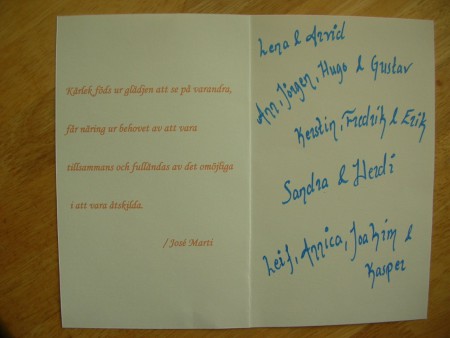 Kärlek föds ur glädjen att se på varandra,
får näring ur behovet av att vara
tillsammans och fulländas av det omöjliga
i att vara åtskilda.
/ José Martí
Lena & Arvid
Ann, Jörgen, Hugo & Gustav
Kerstin, Fredrik & Erik
Sandra & Herdi
Leif, Annica, Joakim &
Kasper